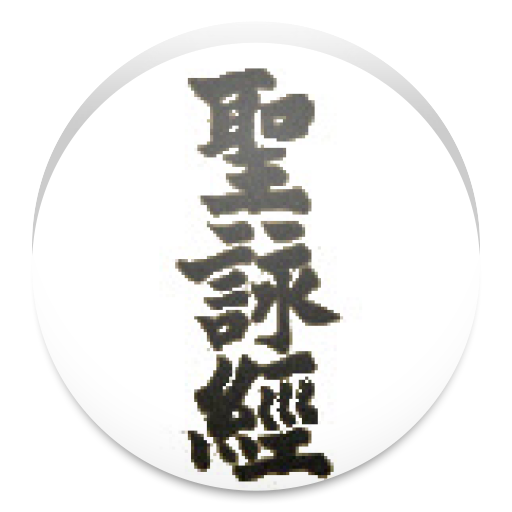 聖詠經